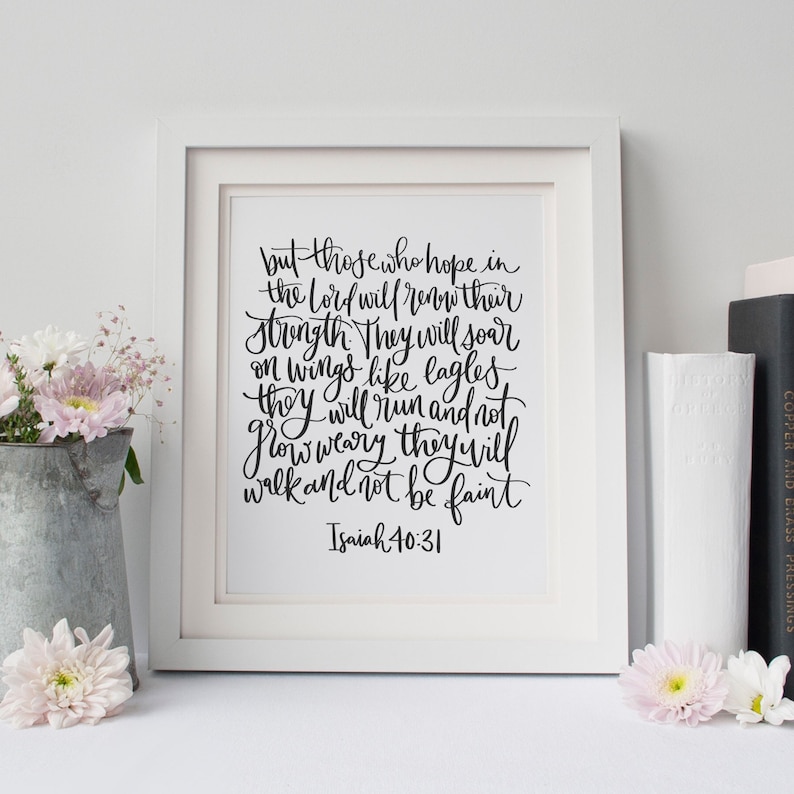 but those who hope in
the Lord will renew their
strength. They will soar
on wings like eagles
they will run and not
grow weary they will
walk and not be faint
Isaiah 40:31
HISTORY
OF
GREECE
BURY
COPPER AND BRASS PRESSINGS